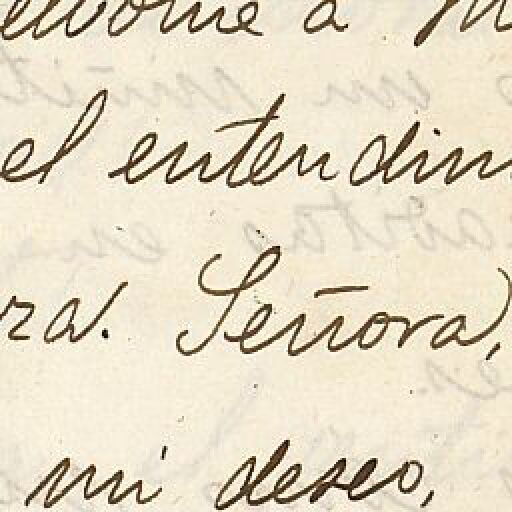 elvome a
el entendim
ra. Señora,
mi deseo,